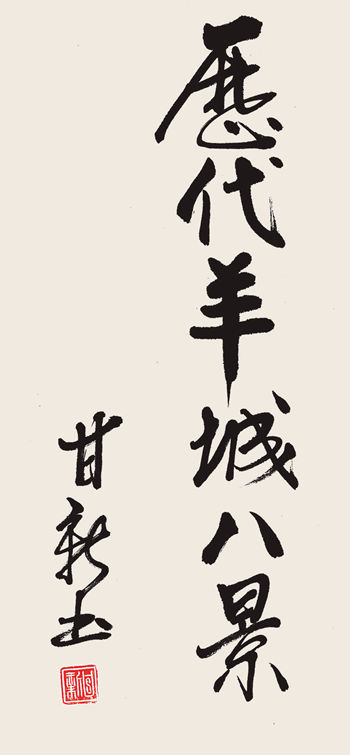 歷代羊城八景
甘新书